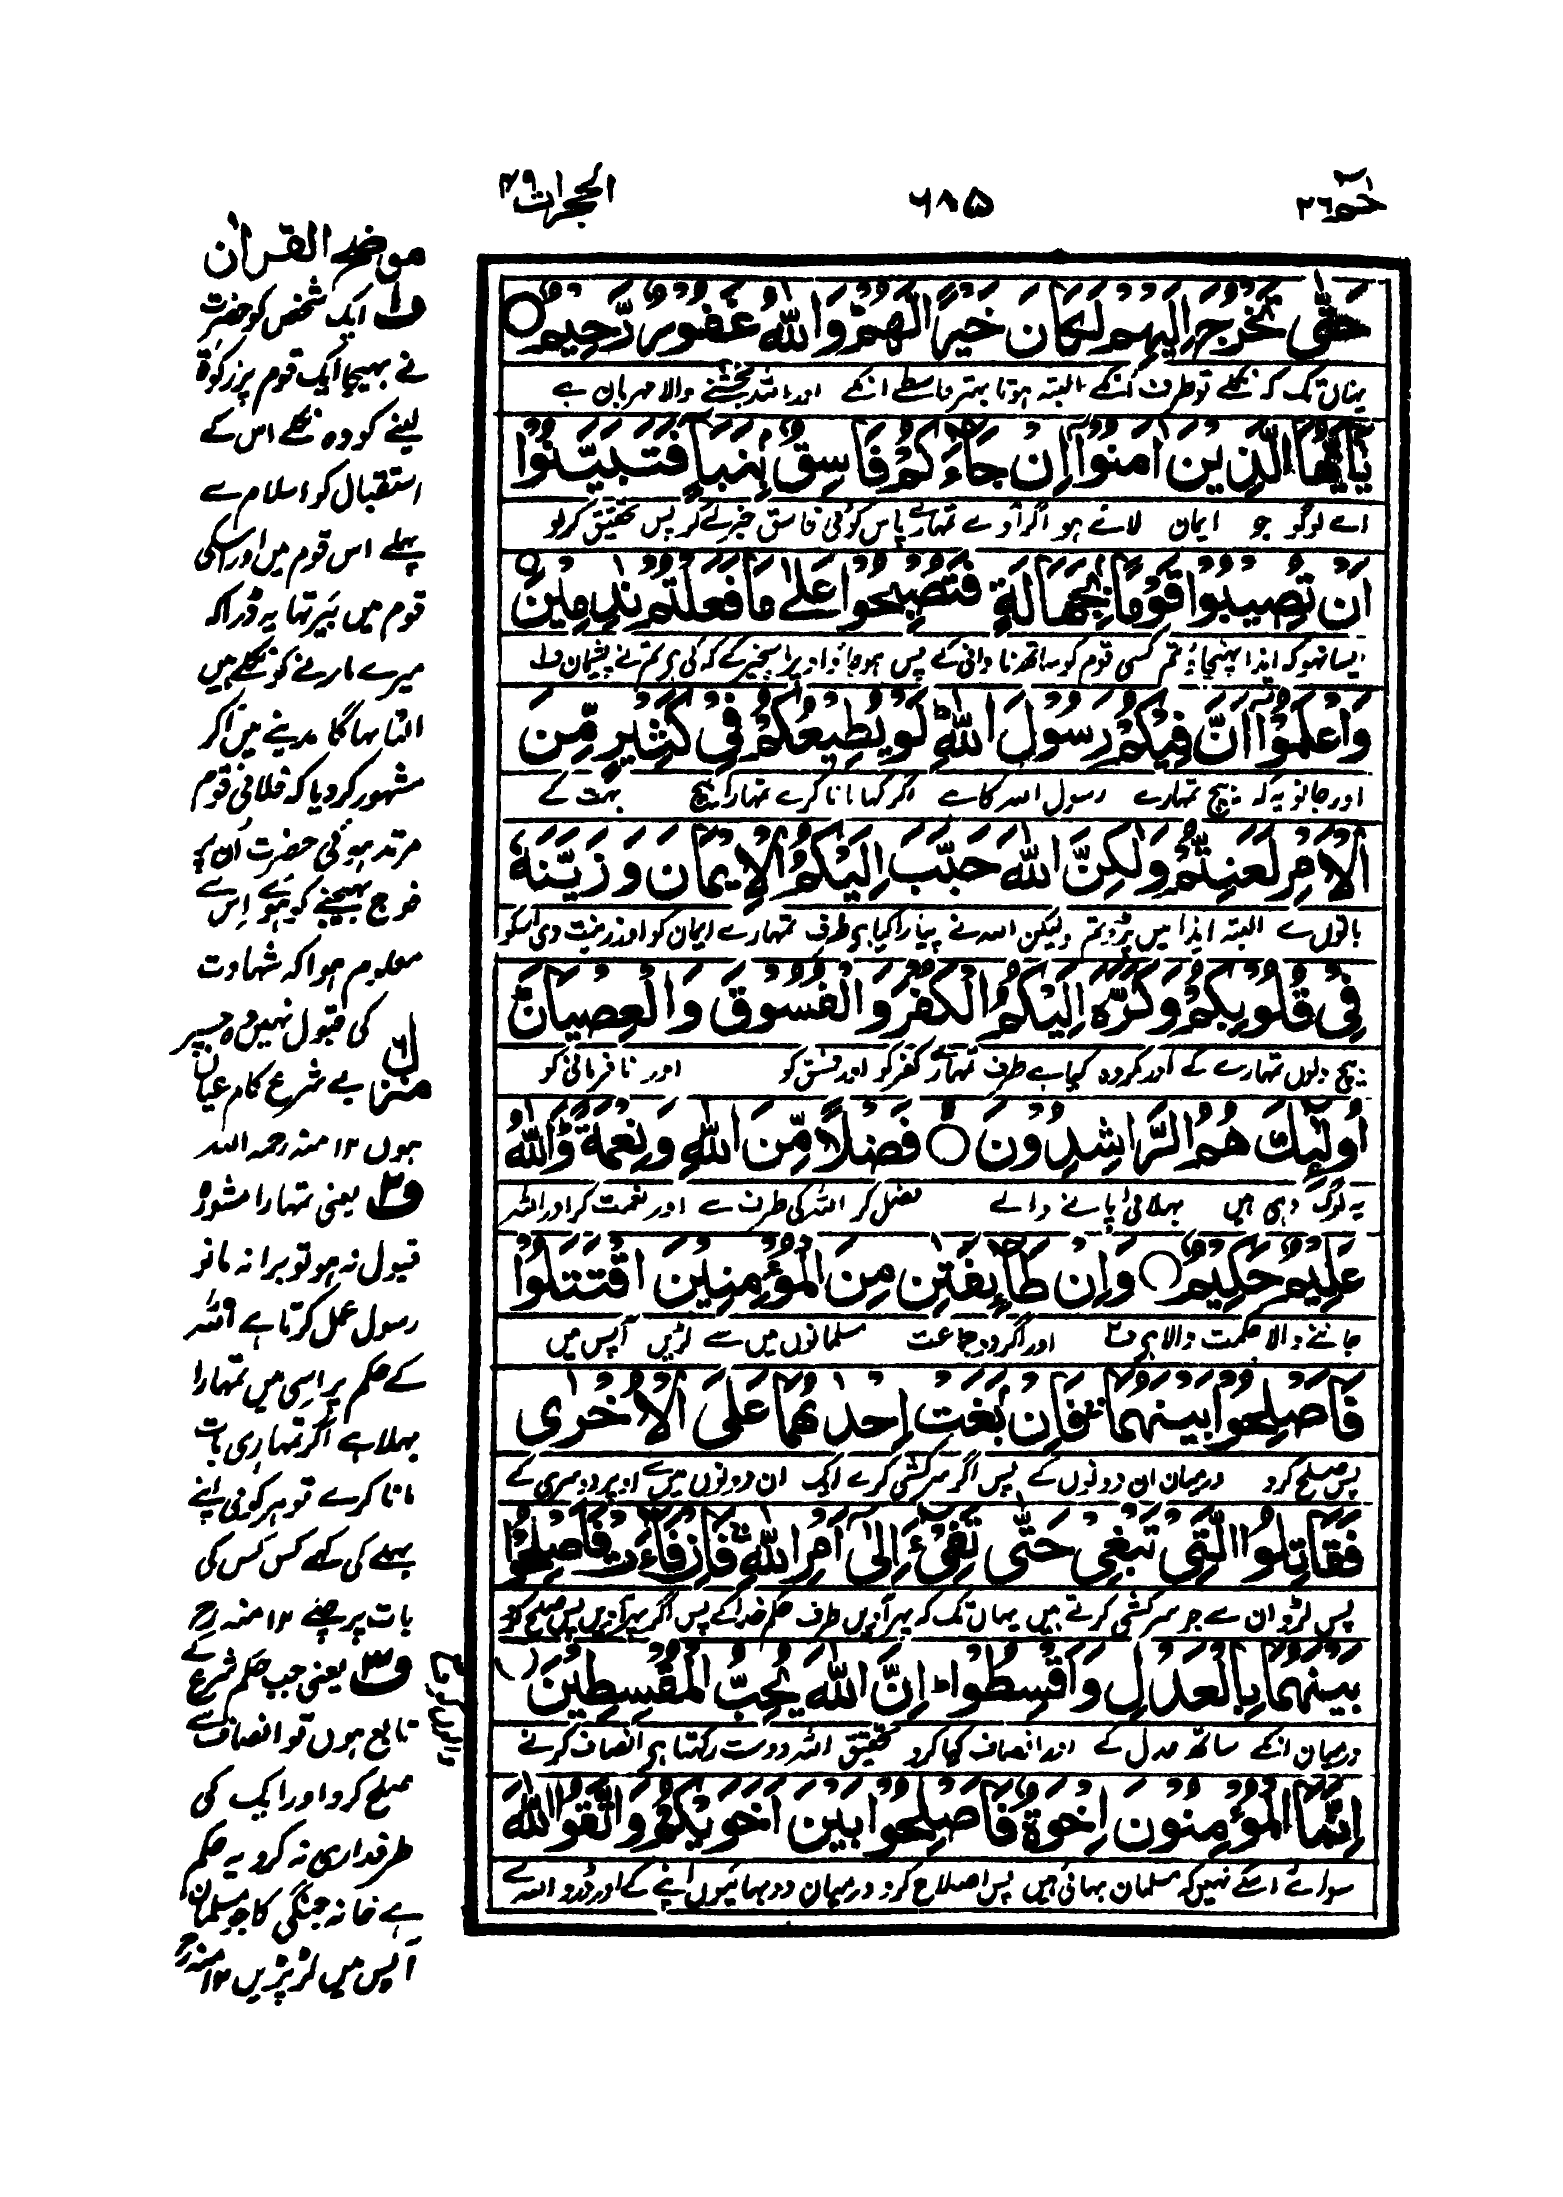 حٰمٓ ٢٦
٦٨٥
الحجرات ٤٩
حَتّٰى تَخْرُجَ اِلَيْهِمْ لَكَانَ خَيْرًا لَّهُمْ وَاللّٰهُ غَفُوْرٌ رَّحِيْمٌ ○
یہاں تک کہ نکلے تو طرف اُنکے البتہ ہوتا بہتر واسطے انکے اور اللہ بخشنے والا مہربان ہے
يٰٓاَيُّهَا الَّذِيْنَ اٰمَنُوْٓا اِنْ جَآءَكُمْ فَاسِقٌۢ بِنَبَاٍ فَتَبَيَّنُوْٓا
اے لوگو جو ایمان لائے ہو اگر آوے تمہارے پاس کوئی فاسق خبر لے کر پس تحقیق کر لو
اَنْ تُصِيْبُوْا قَوْمًاۢ بِجَهَالَةٍ فَتُصْبِحُوْا عَلٰى مَا فَعَلْتُمْ نٰدِمِيْنَ ○
ایسا نہو کہ ایذا پہنچاؤ تم کسی قوم کو ساتھ نادانی کے پس ہو جاؤ اوپر اسچیز کے کہ کی ہی تم نے پشیمان ف۱
وَاعْلَمُوْٓا اَنَّ فِيْكُمْ رَسُوْلَ اللّٰهِ ؕ لَوْ يُطِيْعُكُمْ فِيْ كَثِيْرٍ مِّنَ
اور جانو یہ کہ بیچ تمہارے رسول اللہ کا ہے اگر کہا مانا کرے تمہارا بیچ بہت کے
الْاَمْرِ لَعَنِتُّمْ وَلٰكِنَّ اللّٰهَ حَبَّبَ اِلَيْكُمُ الْاِيْمَانَ وَزَيَّنَهٗ
باتوں سے البتہ ایذا میں پڑو تم ولیکن اللہ نے پیارا کیا ہی طرف تمہارے ایمان کو اور زینت دی اسکو
فِيْ قُلُوْبِكُمْ وَكَرَّهَ اِلَيْكُمُ الْكُفْرَ وَالْفُسُوْقَ وَالْعِصْيَانَ ؕ
بیچ دلوں تمہارے کے اور مکروہ کیا ہے طرف تمہارے کفر کو اور فسق کو اور نافرمانی کو
اُولٰٓئِكَ هُمُ الرّٰشِدُوْنَ ○ فَضْلًا مِّنَ اللّٰهِ وَنِعْمَةً ؕ وَاللّٰهُ
یہ لوگ وہی ہیں بھلائی پانے والے فضل کر اللہ کی طرف سے اور نعمت کر اور اللہ
عَلِيْمٌ حَكِيْمٌ ○ وَاِنْ طَآئِفَتٰنِ مِنَ الْمُؤْمِنِيْنَ اقْتَتَلُوْا
جاننے والا حکمت والا ہی ف۲ اور اگر دو جماعت مسلمانوں میں سے لڑیں آپس میں
فَاَصْلِحُوْا بَيْنَهُمَا ۚ فَاِنْۢ بَغَتْ اِحْدٰىهُمَا عَلَى الْاُخْرٰى
پس صلح کرو درمیان ان دونوں کے پس اگر سرکشی کرے ایک ان دونوں میں سے اوپر دوسری کے
فَقَاتِلُوا الَّتِيْ تَبْغِيْ حَتّٰى تَفِيْٓءَ اِلٰٓى اَمْرِ اللّٰهِ ۚ فَاِنْ فَآءَتْ فَاَصْلِحُوْا
پس لڑو ان سے جو سرکشی کرتے ہیں یہاں تک کہ پھر آویں طرف حکم خدا کے پس اگر پھر آویں پس صلح کرو
بَيْنَهُمَا بِالْعَدْلِ وَاَقْسِطُوْا ؕ اِنَّ اللّٰهَ يُحِبُّ الْمُقْسِطِيْنَ
درمیان انکے ساتھ عدل کے اور انصاف کیا کرو تحقیق اللہ دوست رکھتا ہی انصاف کرنے
اِنَّمَا الْمُؤْمِنُوْنَ اِخْوَةٌ فَاَصْلِحُوْا بَيْنَ اَخَوَيْكُمْ وَاتَّقُوا اللّٰهَ
سوائے اسکے نہیں کہ مسلمان بھائی ہیں پس اصلاح کرو درمیان دو بھائیوں اپنے کے اور ڈرو اللہ سے
موضح القرآن
ف۱ ایک شخص کو حضرت
نے بھیجا ایک قوم پر زکوٰۃ
لینے کو وہ نکلے اس کے
استقبال کو اسلام سے
پہلے اس قوم میں اور اسکی
قوم میں بیر تھا یہ ڈرا کہ
میرے مارنے کو نکلے ہیں
الٹا بھاگا مدینے میں آکر
مشہور کر دیا کہ فلانی قوم
مرتد ہو گئی حضرت ان پر
فوج بھیجنے کو ہوئے اس سے
معلوم ہوا کہ شہادت
کی قبول نہیں وہ جسپر
بے شرع کام عیاں
ہوں ۱۲ منہ رحمہ اللہ
منزل ۶
ف۲ یعنی تمہارا مشورہ
قبول نہ ہو تو برا نہ مانو
رسول عمل کرتا ہے اللہ
کے حکم پر اسی میں تمہارا
بھلا ہے اگر تمہاری بات
مانا کرے تو ہر کوئی اپنے
بھلے کی کہے کس کس کی
بات پر چلے ۱۲ منہ رح
ف۳ یعنی جب حکم شرع کے
تابع ہوں تو انصاف سے
صلح کرو اور ایک کی
طرفداری نہ کرو یہ حکم
ہے خانہ جنگی کا جو مسلمان
آپس میں لڑ پڑیں ۱۲ منہ رح